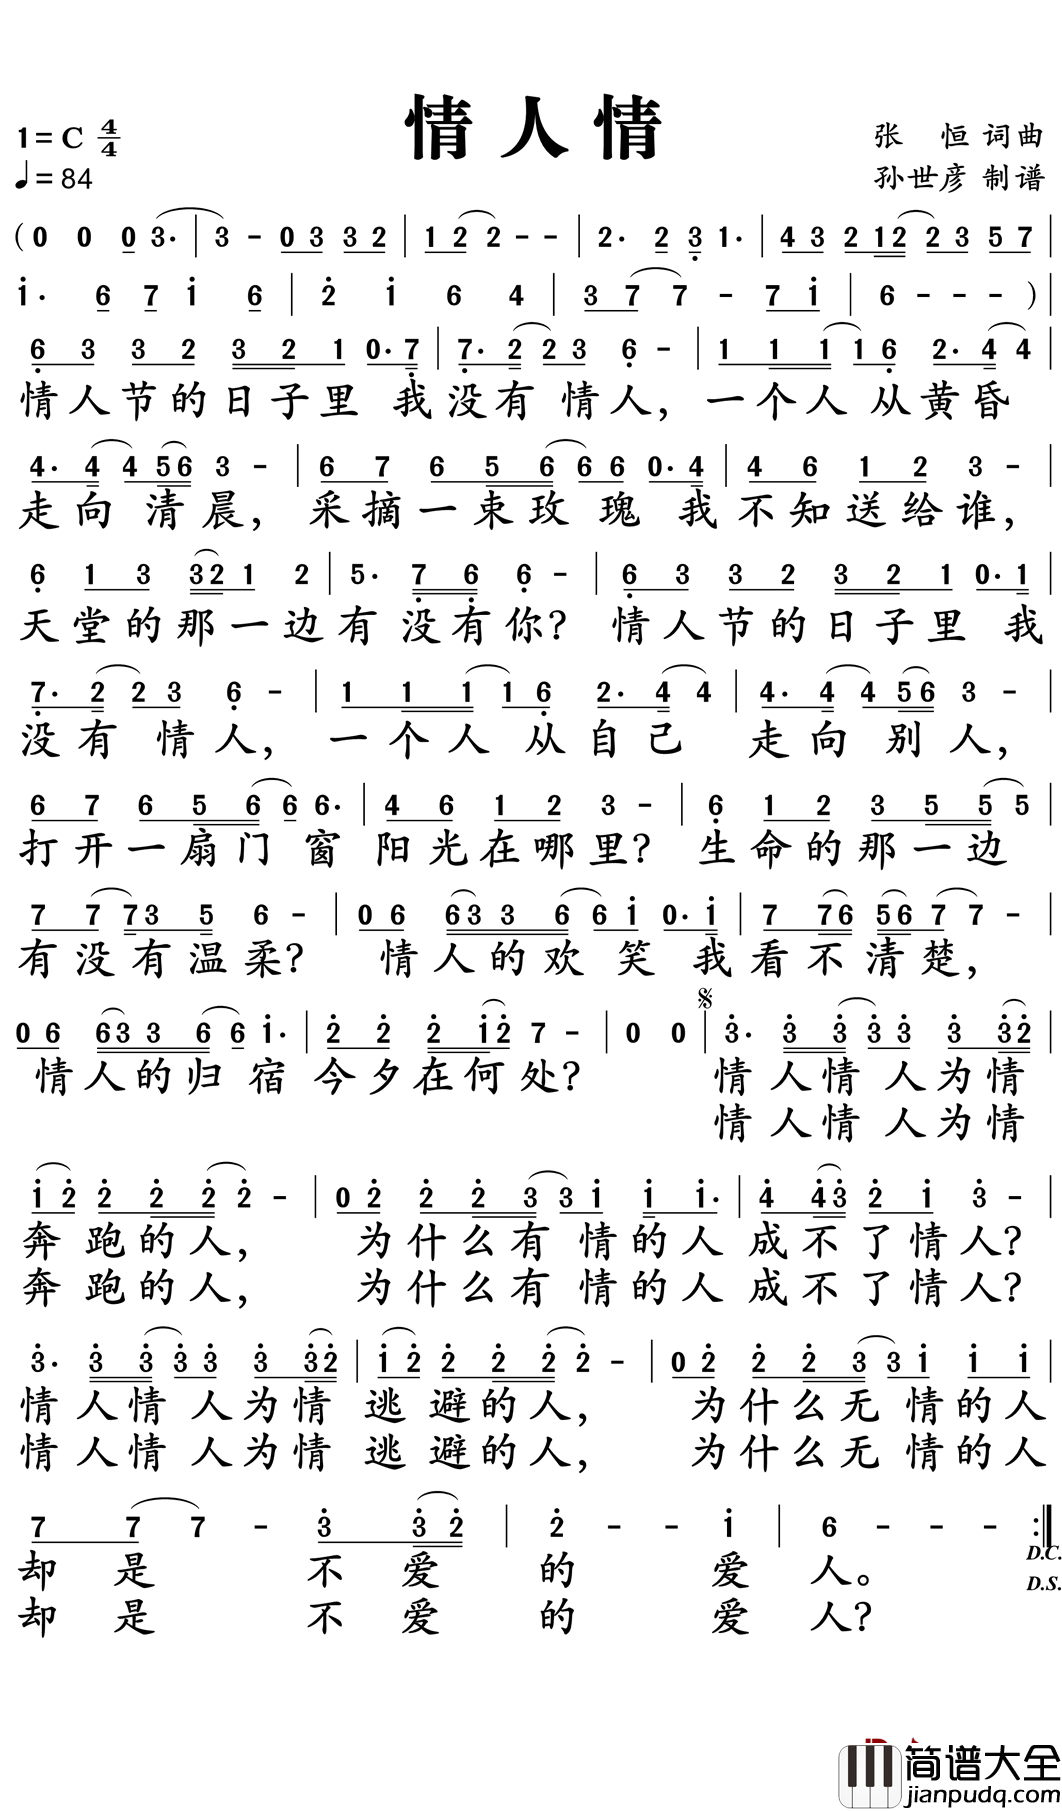 情人情
1=C 4/4
♩=84
张 恒 词曲
孙世彦 制谱
(0 0 0 3· | 3 - 0 3 3 2 | 1 2 2 - - | 2· 2 3 1· | 4 3 2 1 2 2 3 5 7 |
i· 6 7 i 6 | 2 i 6 4 | 3 7 7 - 7 i | 6 - - - ) |
6 3 3 2 3 2 1 0· 7 | 7· 2 2 3 6 - | 1 1 1 1 6 2· 4 4 |
情人节的日子里 我没有 情人,一个人 从黄昏
4· 4 4 5 6 3 - | 6 7 6 5 6 6 6 0· 4 | 4 6 1 2 3 - |
走向 清晨,采摘一束玫 瑰 我不知送给谁,
6 1 3 3 2 1 2 | 5· 7 6 6 - | 6 3 3 2 3 2 1 0· 1 |
天堂的那一边有 没有你? 情人节的日子里 我
7· 2 2 3 6 - | 1 1 1 1 6 2· 4 4 | 4· 4 4 5 6 3 - |
没有 情人,一个人 从自己 走向 别人,
6 7 6 5 6 6 6· | 4 6 1 2 3 - | 6 1 2 3 5 5 5 |
打开一扇门 窗 阳光在哪里? 生命的那一边
7 7 7 3 5 6 - | 0 6 6 3 3 6 6 i 0· i | 7 7 6 5 6 7 7 - |
有没有温柔? 情人的欢 笑 我看不清楚,
0 6 6 3 3 6 6 i· | 2 2 2 i 2 7 - | 0 0 | 3· 3 3 3 3 3 3 2 |
情人的归 宿 今夕在何处? 情 人情 人为情
情 人情 人为情
i 2 2 2 2 2 - | 0 2 2 2 3 3 i i i· | 4 4 3 2 i 3 - |
奔 跑的人, 为什么有 情的人 成不了情人?
奔 跑的人, 为什么有 情的人 成不了情人?
3· 3 3 3 3 3 3 2 | i 2 2 2 2 2 - | 0 2 2 2 3 3 i i i |
情 人情 人为情 逃 避的人, 为什么无 情的人
情 人情 人为情 逃 避的人, 为什么无 情的人
7 7 7 - 3 3 2 | 2 - - i | 6 - - - :|
D.C.
D.S.
却 是 不 爱 的 爱 人。
却 是 不 爱 的 爱 人?
简谱大全
jianpudq.com